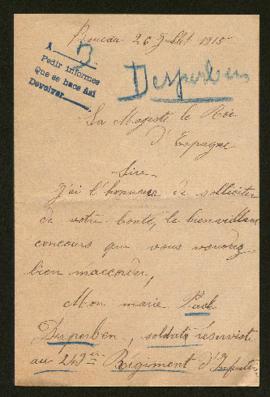 26 Juillet 1915
A 3
Pedir informes
Que se hace Así
Devolver
Desperben
Sa Majesté le Roi
d'Espagne
Sire
J'ai l'honneur de solliciter
de votre bonté, le bienveillant
concours que vous voudrez
bien m'accorder,
Mon marie
Desperben, soldat réserviste
au 249em Régiment d'Infanterie